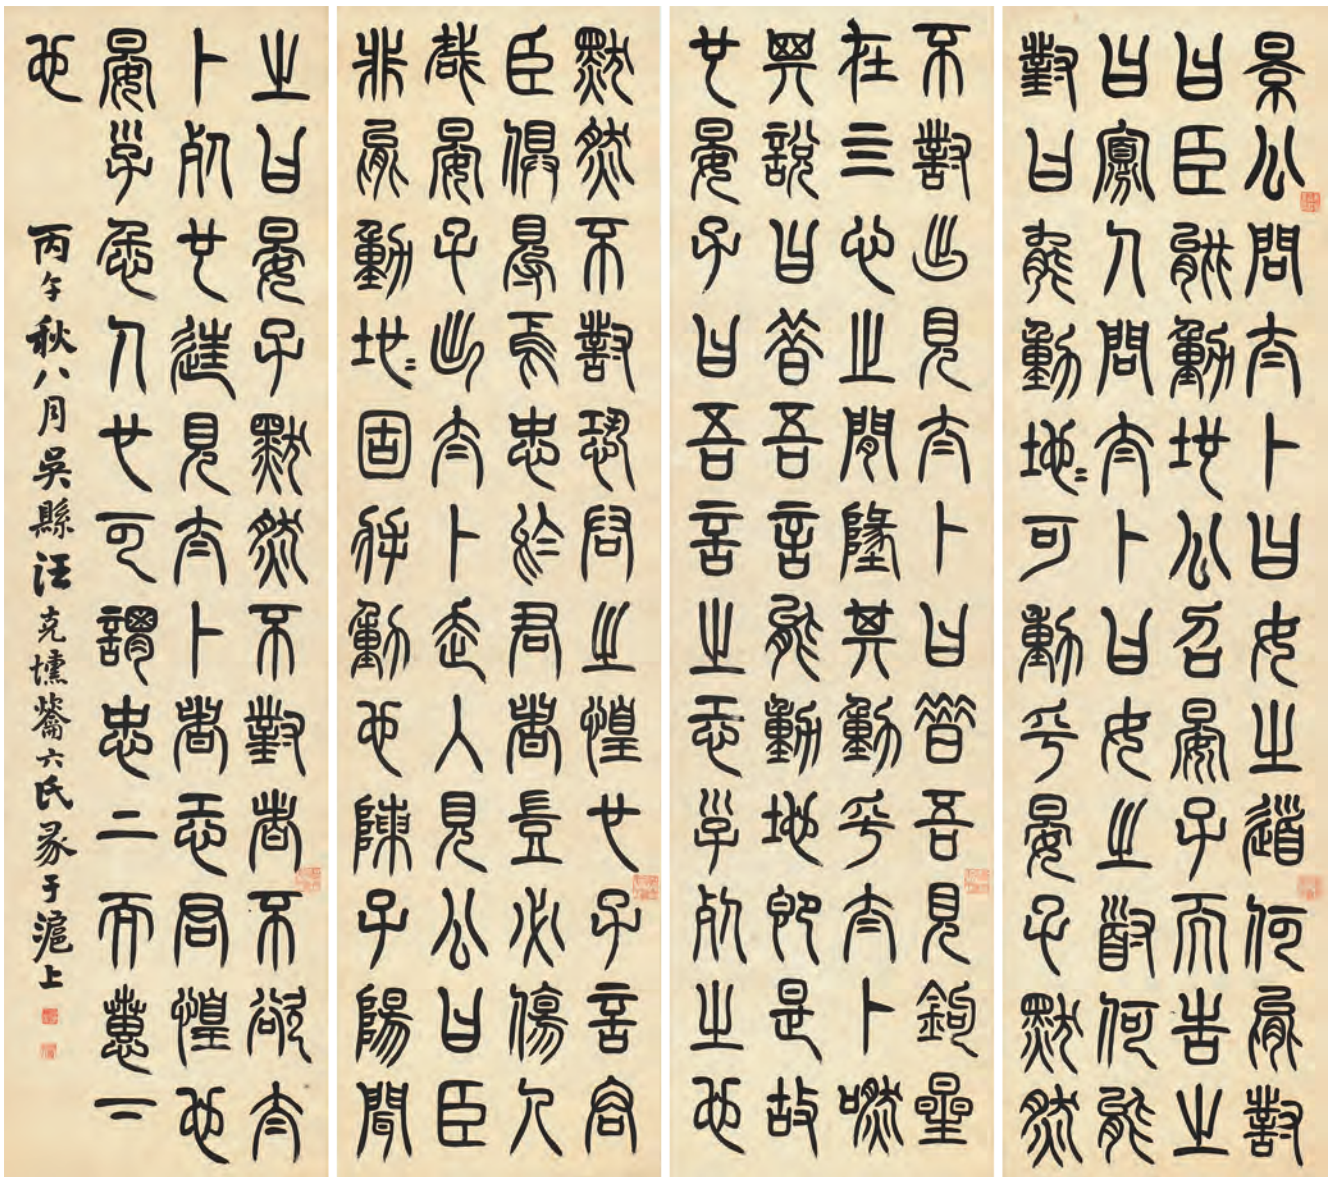 景公問太卜曰女之道何能對
曰臣能動地公召晏子而告之
曰寡人問太卜曰女之道何能
對曰能動地=可動乎晏子默然
不對出見太卜曰昔吾見鉤星
在三心之間墬其動乎太卜嘫
興說曰昔吾言能動地即是故
也晏子曰吾言之恐子死之也
默然不對恐君之惶也子言君
臣俱得焉忠於君者豈必傷人
哉晏子出太卜走入見公曰臣
非能動地=固將動也陳子陽聞
之曰晏子默然不對者不欲太
卜死也往見太卜者恐君惶也
晏子仁人也可謂忠上而惠下
也
丙午秋八月吳縣汪克壎藹六氏篆于滬上